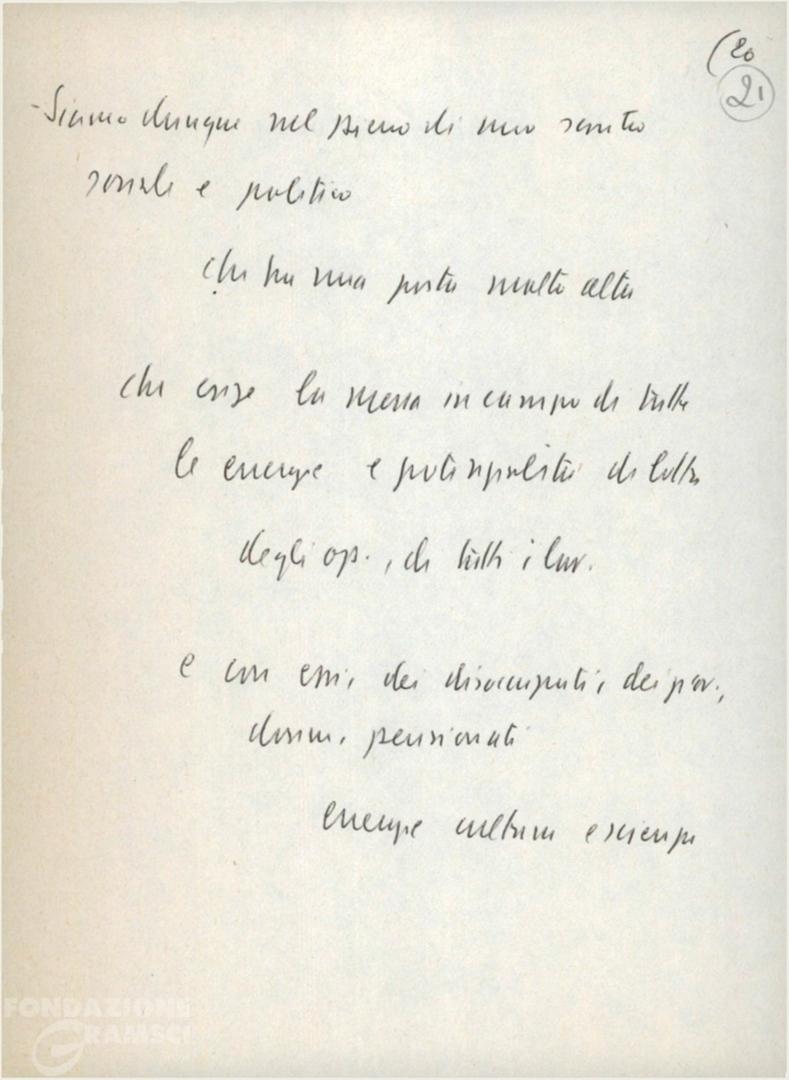 (20
21
- Siamo dunque nel pieno di uno scontro
sociale e politico
che ha una posta molto alta
che esige la messa in campo di tutte
le energie e potenzialità di lotta
degli op., di tutti i lav.
e con essi, dei disoccupati, dei giov.,
donne, pensionati
energie cultura e scienza
FONDAZIONE
GRAMSCI